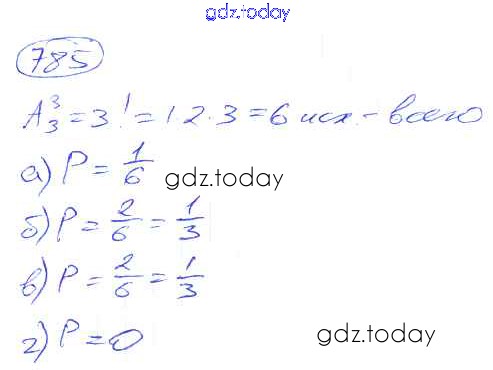 gdz.today
785
A₃³ = 3! = 1·2·3 = 6 исх. – всего
а) P = 1/6
gdz.today
б) P = 2/6 = 1/3
в) P = 2/6 = 1/3
г) P = 0
gdz.today